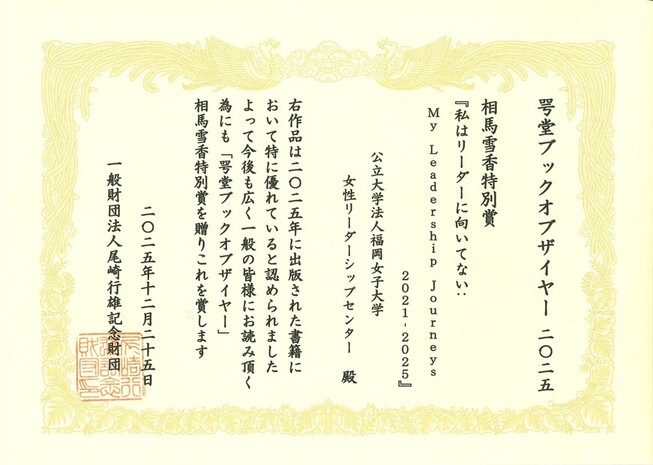 咢堂ブックオブザイヤー 二〇二五
相馬雪香特別賞
『私はリーダーに向いてない:
My Leadership Journeys
2021-2025』
公立大学法人福岡女子大学
女性リーダーシップセンター 殿
右作品は二〇二五年に出版された書籍に
おいて特に優れていると認められました
よって今後も広く一般の皆様にお読み頂く
為にも「咢堂ブックオブザイヤー」
相馬雪香特別賞を贈りこれを賞します
二〇二五年十二月二十五日
一般財団法人尾崎行雄記念財団